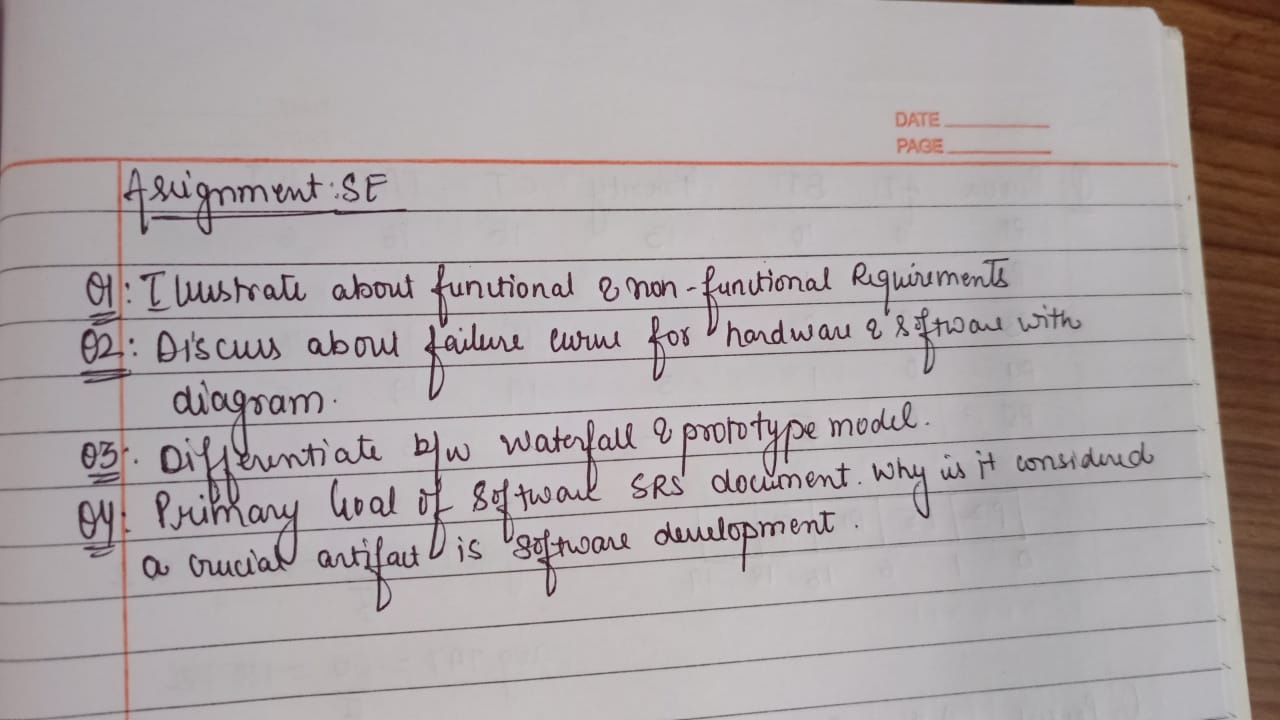 DATE
PAGE
Assignment: SE
Q1: Illustrate about functional & non-functional Requirements
Q2: Discuss about failure curve for hardware & software with
diagram.
Q3: Differentiate b/w Waterfall & prototype model.
Q4: Primary Goal of Software SRS document. Why is it considered
a crucial artifact is software development.